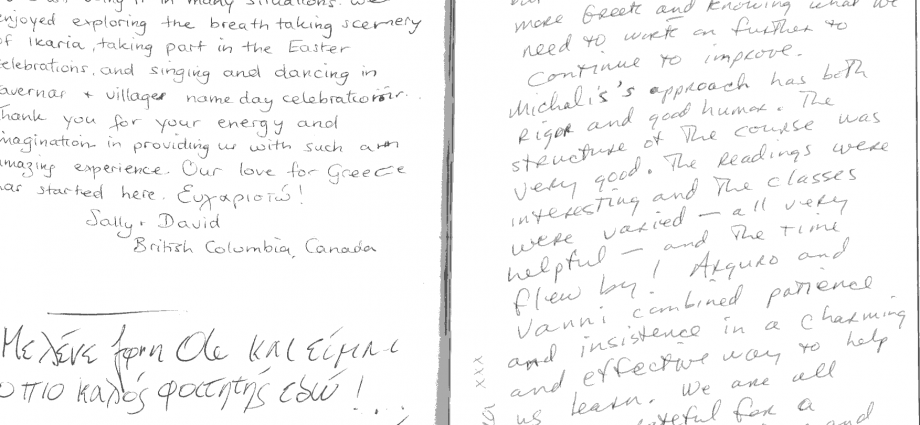 in many situations. We
enjoyed exploring the breath taking scenery
of Ikaria, taking part in the Easter
celebrations, and singing and dancing in
tavernas + villages name day celebrations.
Thank you for your energy and
imagination in providing us with such an
amazing experience. Our love for Greece
has started here. Ευχαριστώ!
Sally + David
British Columbia, Canada
Με λένε Θε και είμαι
ο πιο καλός φοιτητής εδώ! . . .
more Greek and knowing what we
need to work on further to
continue to improve.
Michalis's approach has both
rigor and good humor. The
structure of the course was
very good. The readings were
interesting and the classes
were varied – all very
helpful – and the time
flew by! Arguro and
Vanni combined patience
and insistence in a charming
and effective way to help
us learn. We are all
for a
and
xxx